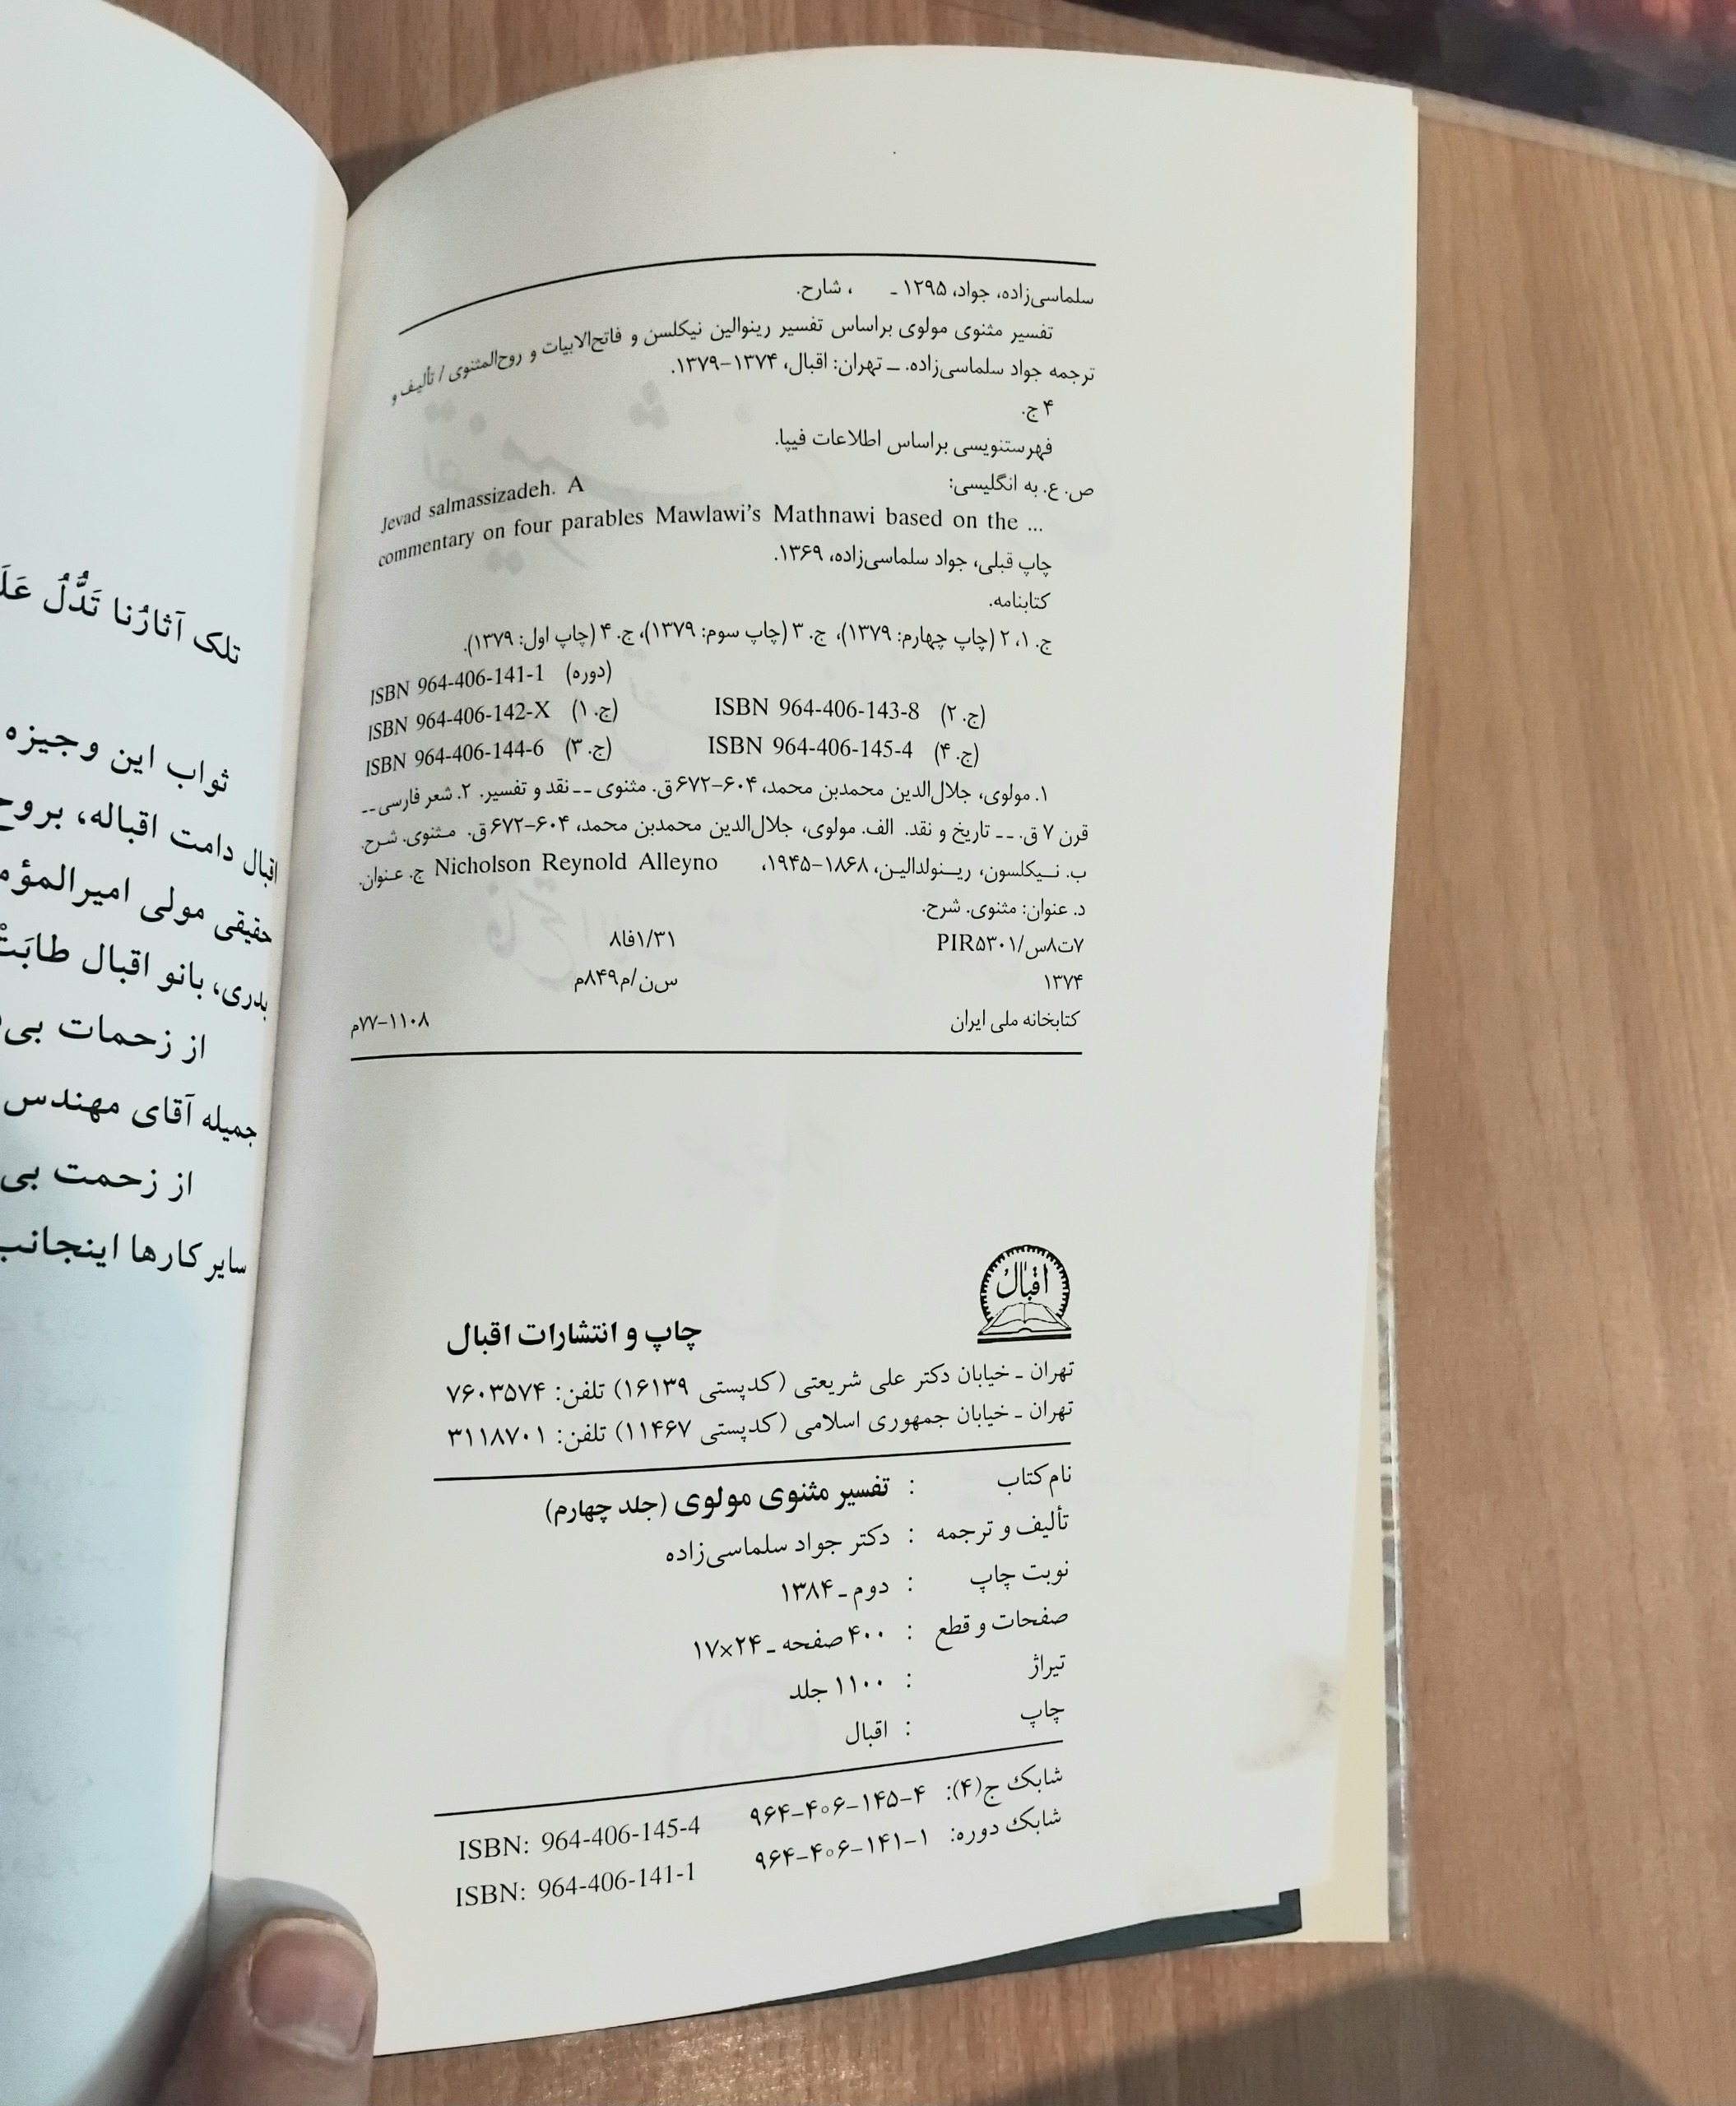 سلماسی‌زاده، جواد، ۱۲۹۵ ـ      ، شارح.
تفسیر مثنوی مولوی براساس تفسیر رینوالین نیکلسن و فاتح‌الابیات و روح‌المثنوی / تألیف و
ترجمه جواد سلماسی‌زاده. ـ تهران: اقبال، ۱۳۷۴-۱۳۷۹.
۴ ج.
فهرستنویسی براساس اطلاعات فیپا.
ص. ع. به انگلیسی: Jevad salmassizadeh. A
commentary on four parables Mawlawi's Mathnawi based on the ...
چاپ قبلی، جواد سلماسی‌زاده، ۱۳۶۹.
کتابنامه.
ج. ۱، ۲ (چاپ چهارم: ۱۳۷۹)، ج. ۳ (چاپ سوم: ۱۳۷۹)، ج. ۴ (چاپ اول: ۱۳۷۹).
ISBN 964-406-141-1 (دوره)
ISBN 964-406-142-X (ج. ۱) ISBN 964-406-143-8 (ج. ۲)
ISBN 964-406-144-6 (ج. ۳) ISBN 964-406-145-4 (ج. ۴)
۱. مولوی، جلال‌الدین محمدبن محمد، ۶۰۴-۶۷۲ق. مثنوی ــ نقد و تفسیر. ۲. شعر فارسی ــ
قرن ۷ ق. ــ تاریخ و نقد. الف. مولوی، جلال‌الدین محمدبن محمد، ۶۰۴-۶۷۲ق. مثنوی. شرح.
ب. نیکلسون، رینولدالین، ۱۸۶۸-۱۹۴۵، Nicholson Reynold Alleyno ج. عنوان.
د. عنوان: مثنوی. شرح.
۷ت۸س/PIR۵۳۰۱ ۸فا۱/۳۱
۱۳۷۴ س‌ن/م۸۴۹م
کتابخانه ملی ایران ۱۱۰۸-۷۷م
اقبال
چاپ و انتشارات اقبال
تهران ـ خیابان دکتر علی شریعتی (کدپستی ۱۶۱۳۹) تلفن: ۷۶۰۳۵۷۴
تهران ـ خیابان جمهوری اسلامی (کدپستی ۱۱۴۶۷) تلفن: ۳۱۱۸۷۰۱
نام کتاب : تفسیر مثنوی مولوی (جلد چهارم)
تألیف و ترجمه : دکتر جواد سلماسی‌زاده
نوبت چاپ : دوم ـ ۱۳۸۴
صفحات و قطع : ۴۰۰ صفحه ـ ۲۴×۱۷
تیراژ : ۱۱۰۰ جلد
چاپ : اقبال
شابک ج(۴): ۴-۱۴۵-۴۰۶-۹۶۴ ISBN: 964-406-145-4
شابک دوره: ۱-۱۴۱-۴۰۶-۹۶۴ ISBN: 964-406-141-1
تلک آثارُنا تَدُّلُ
ثواب این وجیزه
اقبال دامت اقباله، بروح
حقیقی مولی
بدری، بانو اقبال طابَتْ
از زحمات
جمیله آقای مهندس
از زحمت بی
سایر کارها اینجانب